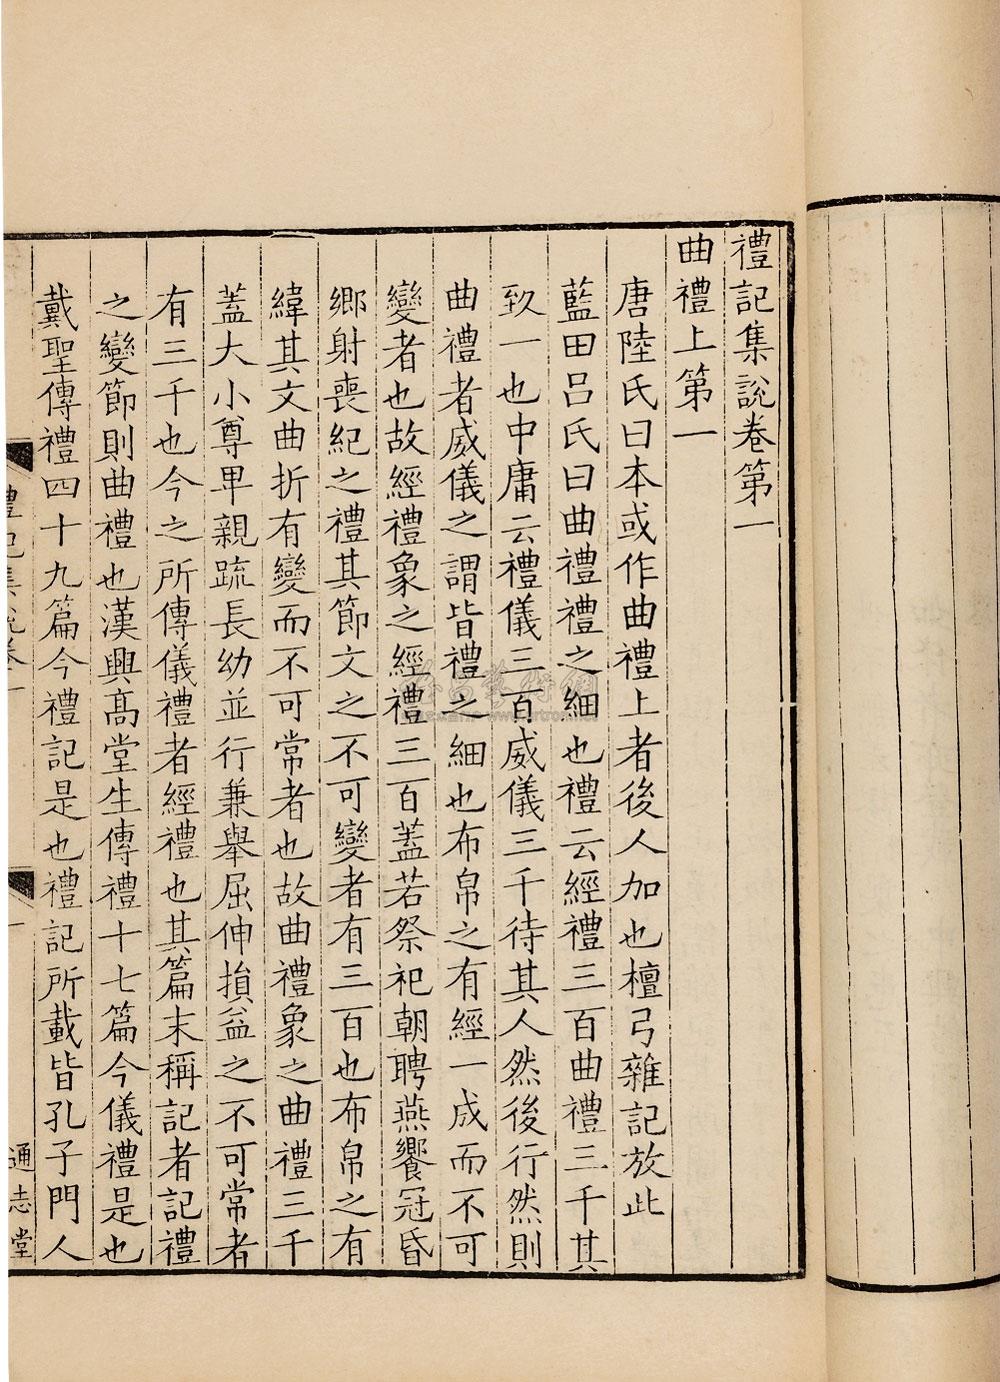 禮記集說卷第一
曲禮上第一
唐陸氏曰本或作曲禮上者後人加也檀弓雜記放此
藍田呂氏曰曲禮禮之細也禮云經禮三百曲禮三千其
致一也中庸云禮儀三百威儀三千待其人然後行然則
曲禮者威儀之謂皆禮之細也布帛之有經一成而不可
變者也故經禮象之經禮三百蓋若祭祀朝聘燕饗冠昏
鄉射喪紀之禮其節文之不可變者有三百也布帛之有
緯其文曲折有變而不可常者也故曲禮象之曲禮三千
蓋大小尊卑親疏長幼並行兼舉屈伸損益之不可常者
有三千也今之所傳儀禮者經禮也其篇末稱記者記禮
之變節則曲禮也漢興高堂生傳禮十七篇今儀禮是也
戴聖傳禮四十九篇今禮記是也禮記所載皆孔子門人
禮記集說卷一
一
通志堂